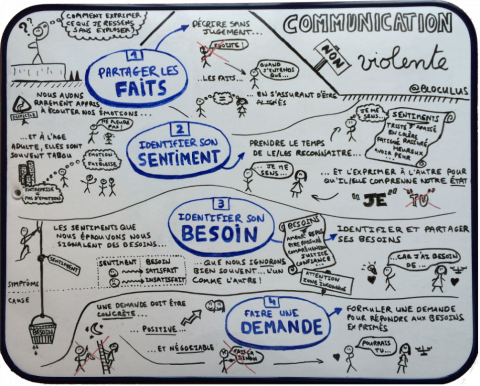 COMMENT EXPRIMER
CE QUE JE RESSENS
SANS EXPLOSER?
COMMUNICATION
NON
violente
@BLOCULUS
1
PARTAGER LES
FAITS
DÉCRIRE SANS
JUGEMENT...
...LES FAITS...
QUAND
J'ENTENDS
QUE...
... EN S'ASSURANT D'ÊTRE
ALIGNÉS
NOUS AVONS
RAREMENT APPRIS
À ÉCOUTER NOS ÉMOTIONS...
NE PLEURE
PAS!
...ET À L'ÂGE
ADULTE, ELLES SONT
SOUVENT TABOU
ÉMOTION
FAIBLESSE
ENTREPRISE
PAS D'ÉMOTIONS
2
IDENTIFIER SON
SENTIMENT
PRENDRE LE TEMPS
DE LE/LES RECONNAÎTRE...
JE ME
SENS...
JE ME
SENS...
SENTIMENTS
TRISTE
EN COLÈRE
FATIGUÉ
HEUREUX
AVOIR PEUR
... ET L'EXPRIMER À L'AUTRE POUR
QU'IL/ELLE COMPRENNE NOTRE ÉTAT
"JE" "TU"
3
IDENTIFIER SON
BESOIN
LES SENTIMENTS QUE
NOUS ÉPROUVONS NOUS
SIGNALENT DES BESOINS...
SENTIMENT
SENTIMENT BESOIN
SATISFAIT
INSATISFAIT
...QUE NOUS IGNORONS
BIEN SOUVENT... L'UN
COMME L'AUTRE!
BESOINS
AMOUR
JUSTICE
CONFIANCE
ATTENTION
ZONE INCONNUE
IDENTIFIER ET PARTAGER
SES BESOINS
...CAR J'AI BESOIN
DE...
SYMPTÔME
CAUSE
BESOIN
4
FAIRE UNE
DEMANDE
UNE DEMANDE DOIT ÊTRE
CONCRÈTE...
... POSITIVE...
... ET NÉGOCIABLE
FORMULER UNE DEMANDE
POUR RÉPONDRE AUX BESOINS
EXPRIMÉS
POURRAIS
TU...